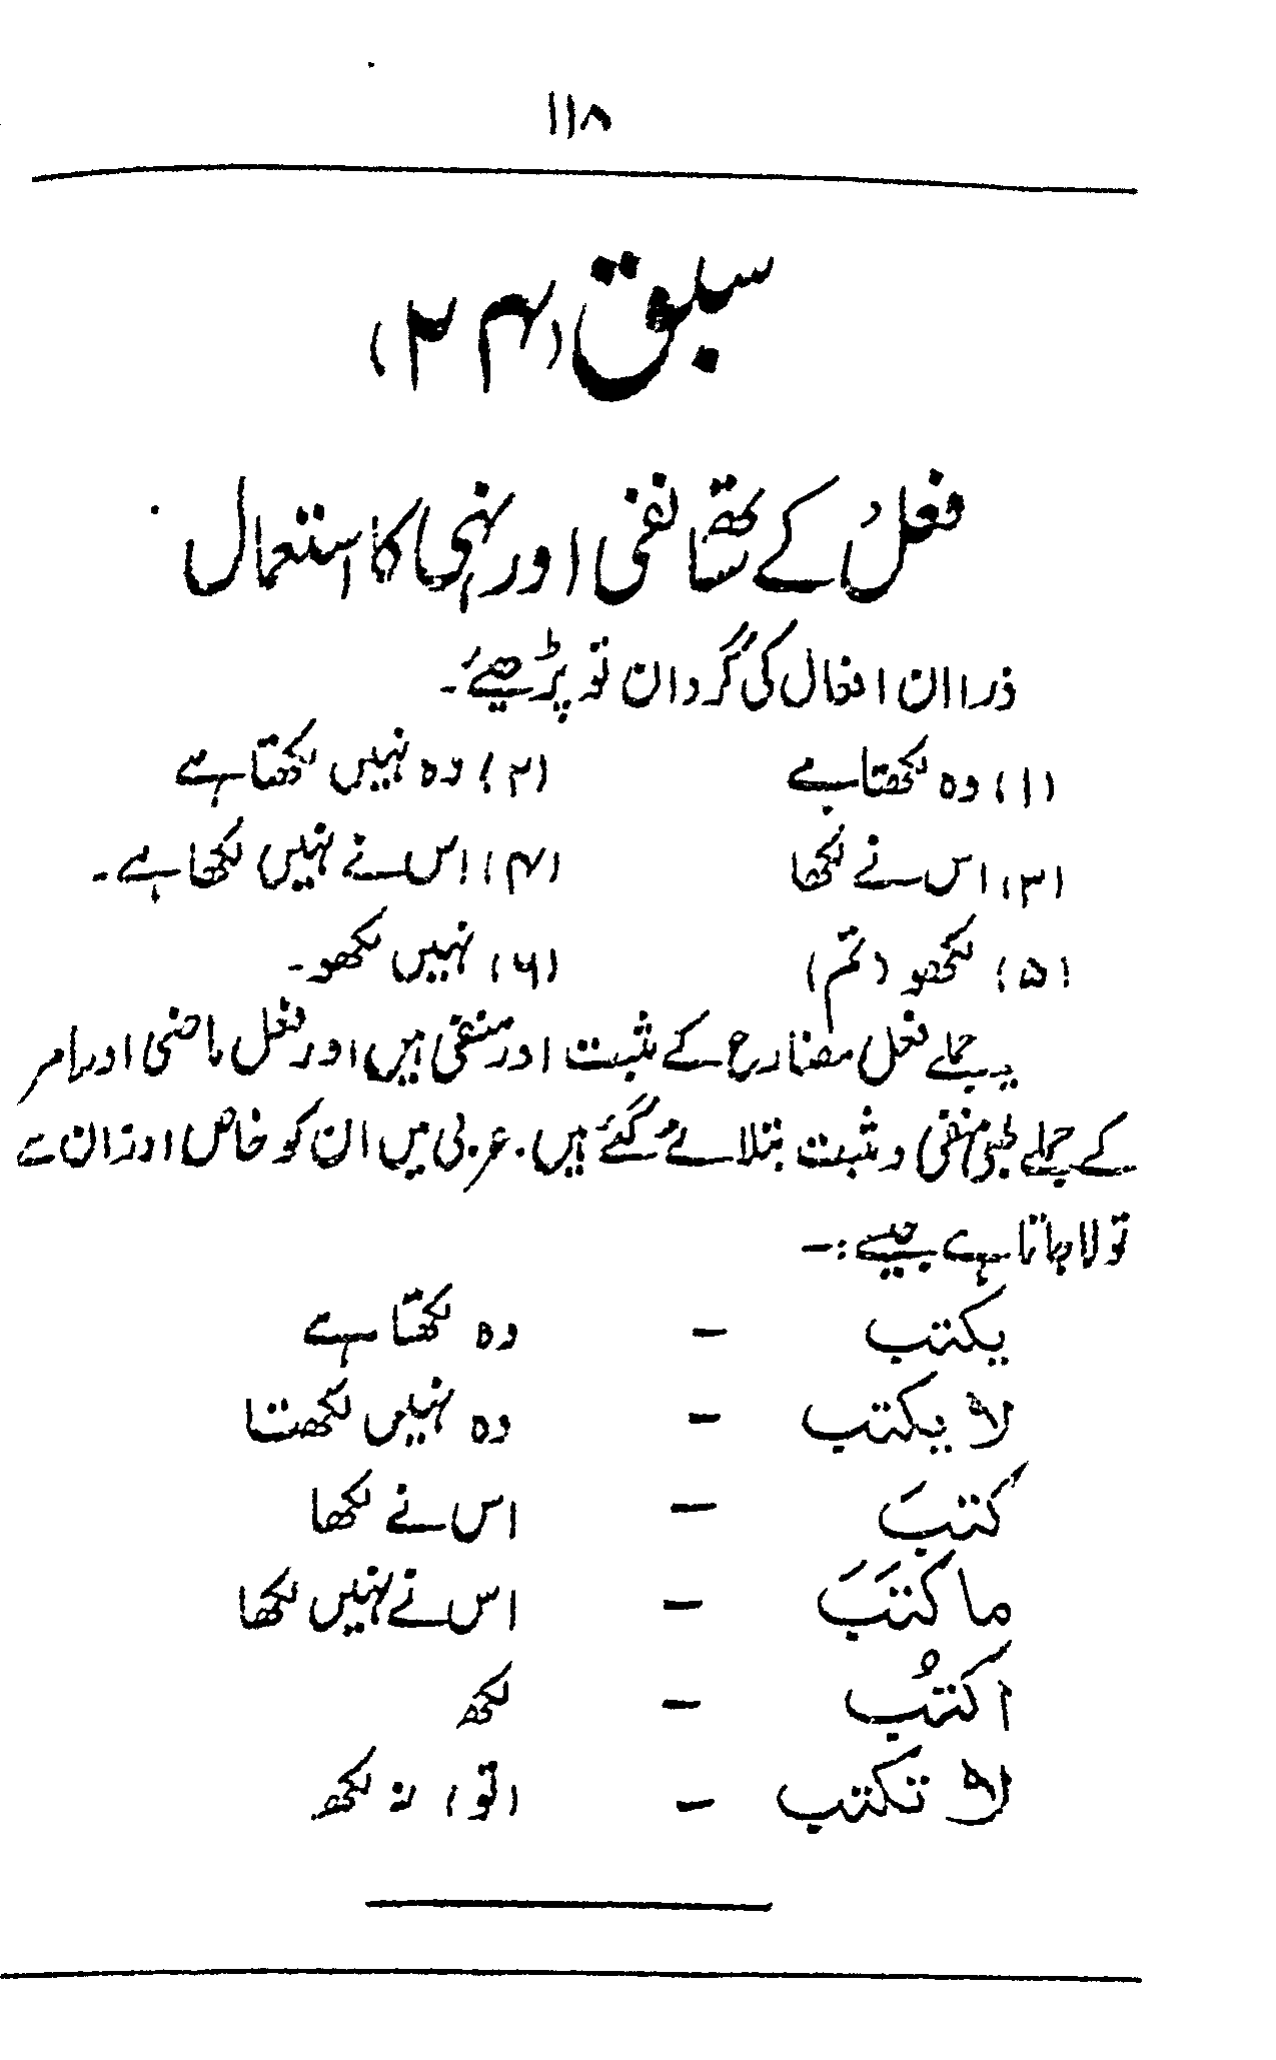 ۱۱۸
سبق (۲۴)
فعل کے ساتھ نفی اور نہی کا استعمال
ذرا ان افعال کی گردان تو پڑھیئے۔
(۱) وہ لکھتا ہے (۲) وہ نہیں لکھتا ہے
(۳) اس نے لکھا (۴) اس نے نہیں لکھا ہے۔
(۵) لکھو (تم) (۶) نہیں لکھو۔
یہ جملے فعل مضارع کے مثبت اور منفی ہیں اور فعل ماضی اور امر
کے جملے بھی منفی و مثبت بتلائے گئے ہیں۔ عربی میں ان کو خاص اوزان سے
تولا جاتا ہے جیسے :۔
یکتب - وہ لکھتا ہے
لا یکتب - وہ نہیں لکھتا
کتبَ - اس نے لکھا
ما کتَبَ - اس نے نہیں لکھا
اکتُب - لکھ
لا تکتب - (تو) نہ لکھ